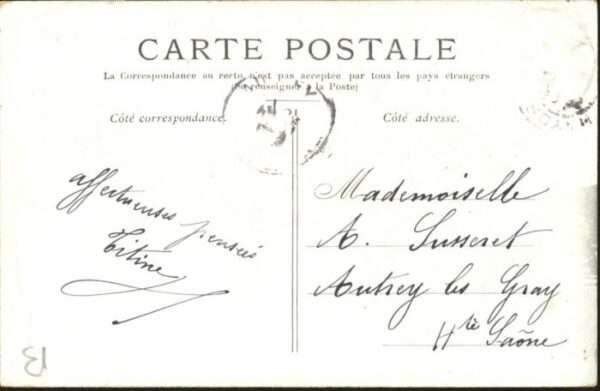 CARTE POSTALE
La Correspondance au recto n'est pas acceptée par tous les pays étrangers
(Se renseigner à la Poste)
Côté correspondance.
Côté adresse.
affectueuses pensées
Titine
Mademoiselle
A. Susseret
Autrey les Gray
Hte Saône